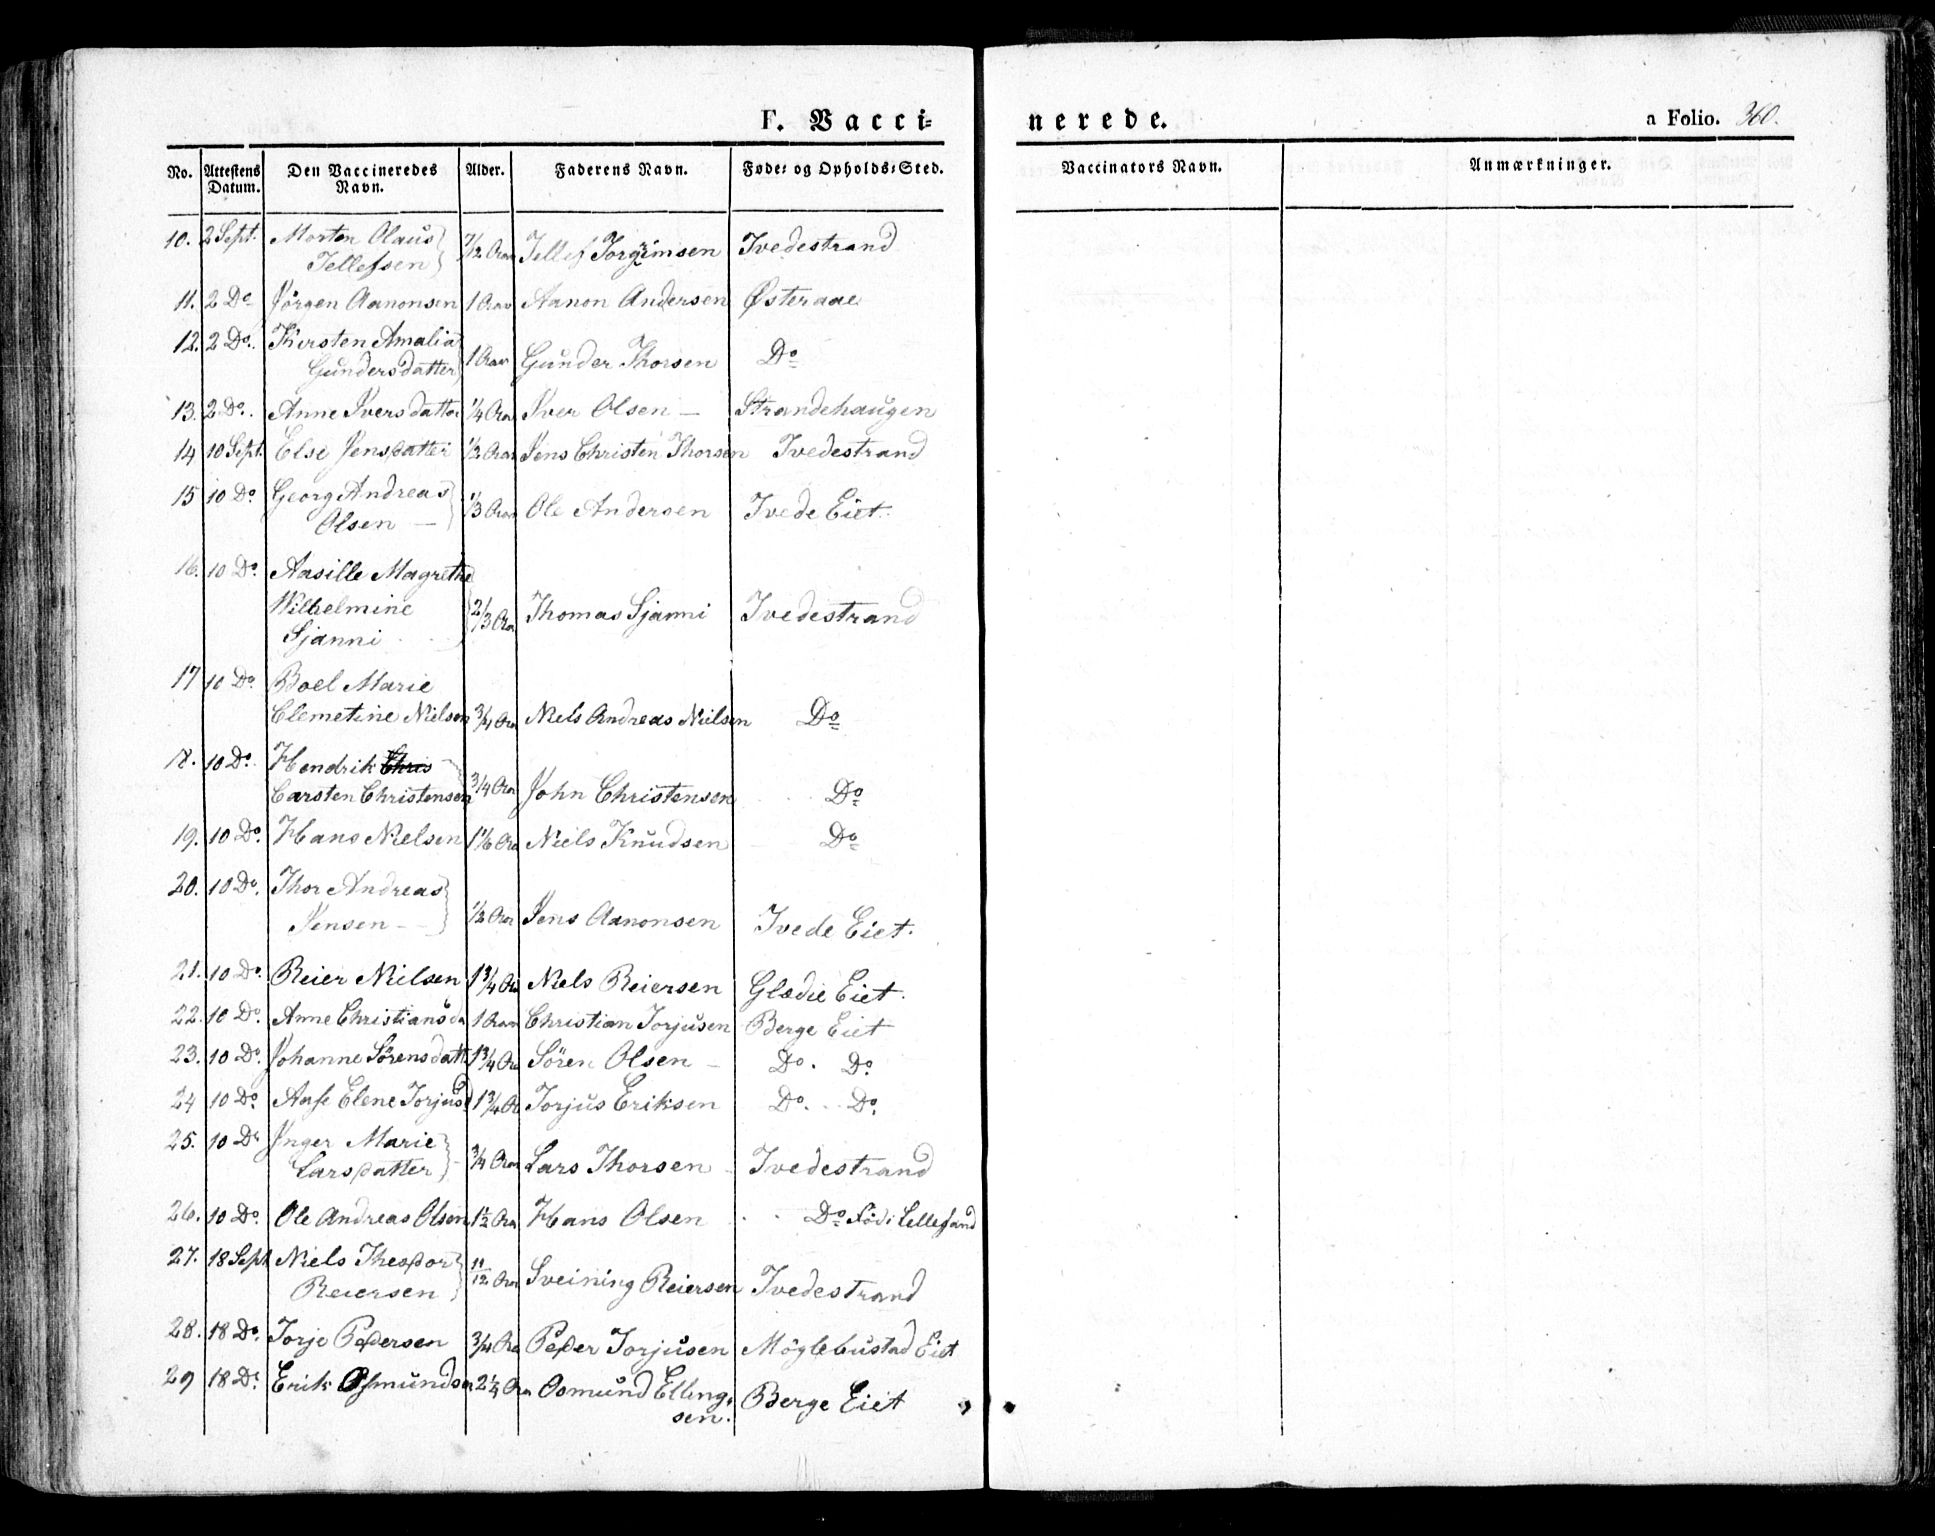 F. Vacci=
nerede.
a Folio. 360.
No. Attestens Datum. Den Vaccineredes Navn. Alder. Faderens Navn. Føde= og Opholds=Sted. Vaccinators Navn. Anmærkninger.
10. 2 Sept. Morten Olaus 7/12 Aar Tellef Jorgimsen Tvedestrand
Tellefsen
11. 2 Do Jörgen Aanonsen 1 Aar Aanon Andersen Østeraae
12. 2 Do. Kirsten Amalia 1 Aar Gunder Thorsen Do
Gundersdatter
13. 2 Do. Anne Iversdatter 1/4 Aar Iver Olsen – Strandehaugen
14 10 Sept. Else Jensdatter 1/2 Aar Jens Christen Thorsen Tvedestrand
15 10 Do Georg Andreas 1/3 Aar Ole Andersen Tvede Eiet.
Olsen –
16. 10 Do. Aasille Magrethe
Wilhelmine 2/3 Aar Thomas Sjanni Tvedestrand
Sjanni
17 10 Do. Boel Marie
Clemetine Nielsen 3/4 Aar Niels Andreas Nielsen Do
18. 10 Do. Hendrik Chris
Carsten Christensen 3/4 Aar John Christensen Do
19. 10 Do. Hans Nielsen 1 1/6 Aar Niels Knudsen Do
20. 10 Do. Thor Andreas
Jensen – 1/2 Aar Jens Aanonsen Tvede Eiet.
21. 10 Do. Reier Nielsen 1 3/4 Aar Niels Reiersen Glædie Eiet.
22. 10 Do. Anne Christiansda 1 Aar Christian Torjusen Berge Eiet
23. 10 Do. Johanne Sörensdatt 1 3/4 Aar Sören Olsen – Do. Do.
24 10 Do. Aase Elene Torjusd 1 3/4 Aar Torjus Eriksen Do. Do.
25. 10 Do Inger Marie 3/4 Aar Lars Thorsen Tvedestrand
Larsdatter
26. 10 Do. Ole Andreas Olsen 1 1/2 Aar Hans Olsen Do Födi Lellesand
27. 18 Sept Niels Theodor 11/12 Aar Sveining Reiersen Tvedestrand
Reiersen
28. 18 Do. Torje Pedersen 3/4 Aar Peder Torjusen Möglebustad Eiet
29 18 Do. Erik Osmundsen 2 1/4 Aar Osmund Elling=
sen. Berge Eiet